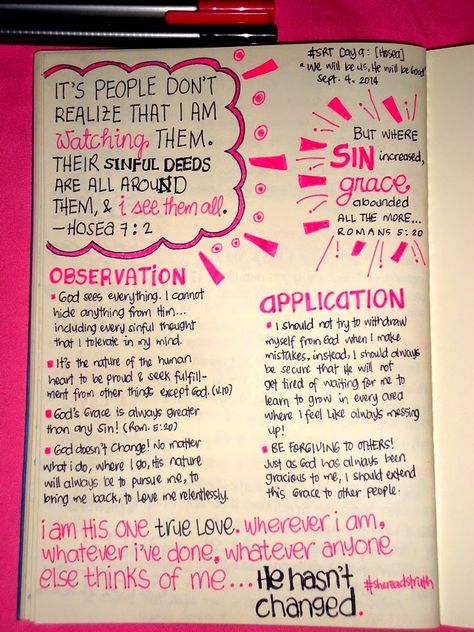 #SRT Day 9: [Hosea]
"We will be us, He will be God"
Sept. 4. 2014
IT'S PEOPLE DON'T
REALIZE THAT I AM
Watching THEM.
THEIR SINFUL DEEDS
ARE ALL AROUND
THEM, & i see them all.
—HOSEA 7:2
BUT WHERE
SIN increased,
grace
abounded
ALL THE MORE...
ROMANS 5:20
OBSERVATION
God sees everything. I cannot
hide anything from Him...
including every sinful thought
that I tolerate in my mind.
It's the nature of the human
heart to be proud & seek fulfill-
ment from other things except God. (v.10)
God's Grace is always greater
than any Sin! (Rom. 5:20)
God doesn't Change! No matter
what i do, where I go, His nature
will always be to pursue me, to
bring me back, to Love me relentlessly.
APPLICATION
I should not try to withdraw
myself from God when I make
mistakes, instead, I should always
be secure that He will not
get tired of waiting for me to
learn to grow in every area
where I feel like always messing
up!
BE FORGIVING TO OTHERS!
Just as God has always been
gracious to me, I should extend
this Grace to other people.
i am His one true Love. wherever i am,
whatever i've done, whatever anyone
else thinks of me... He hasn't
changed.
#shereadstruth